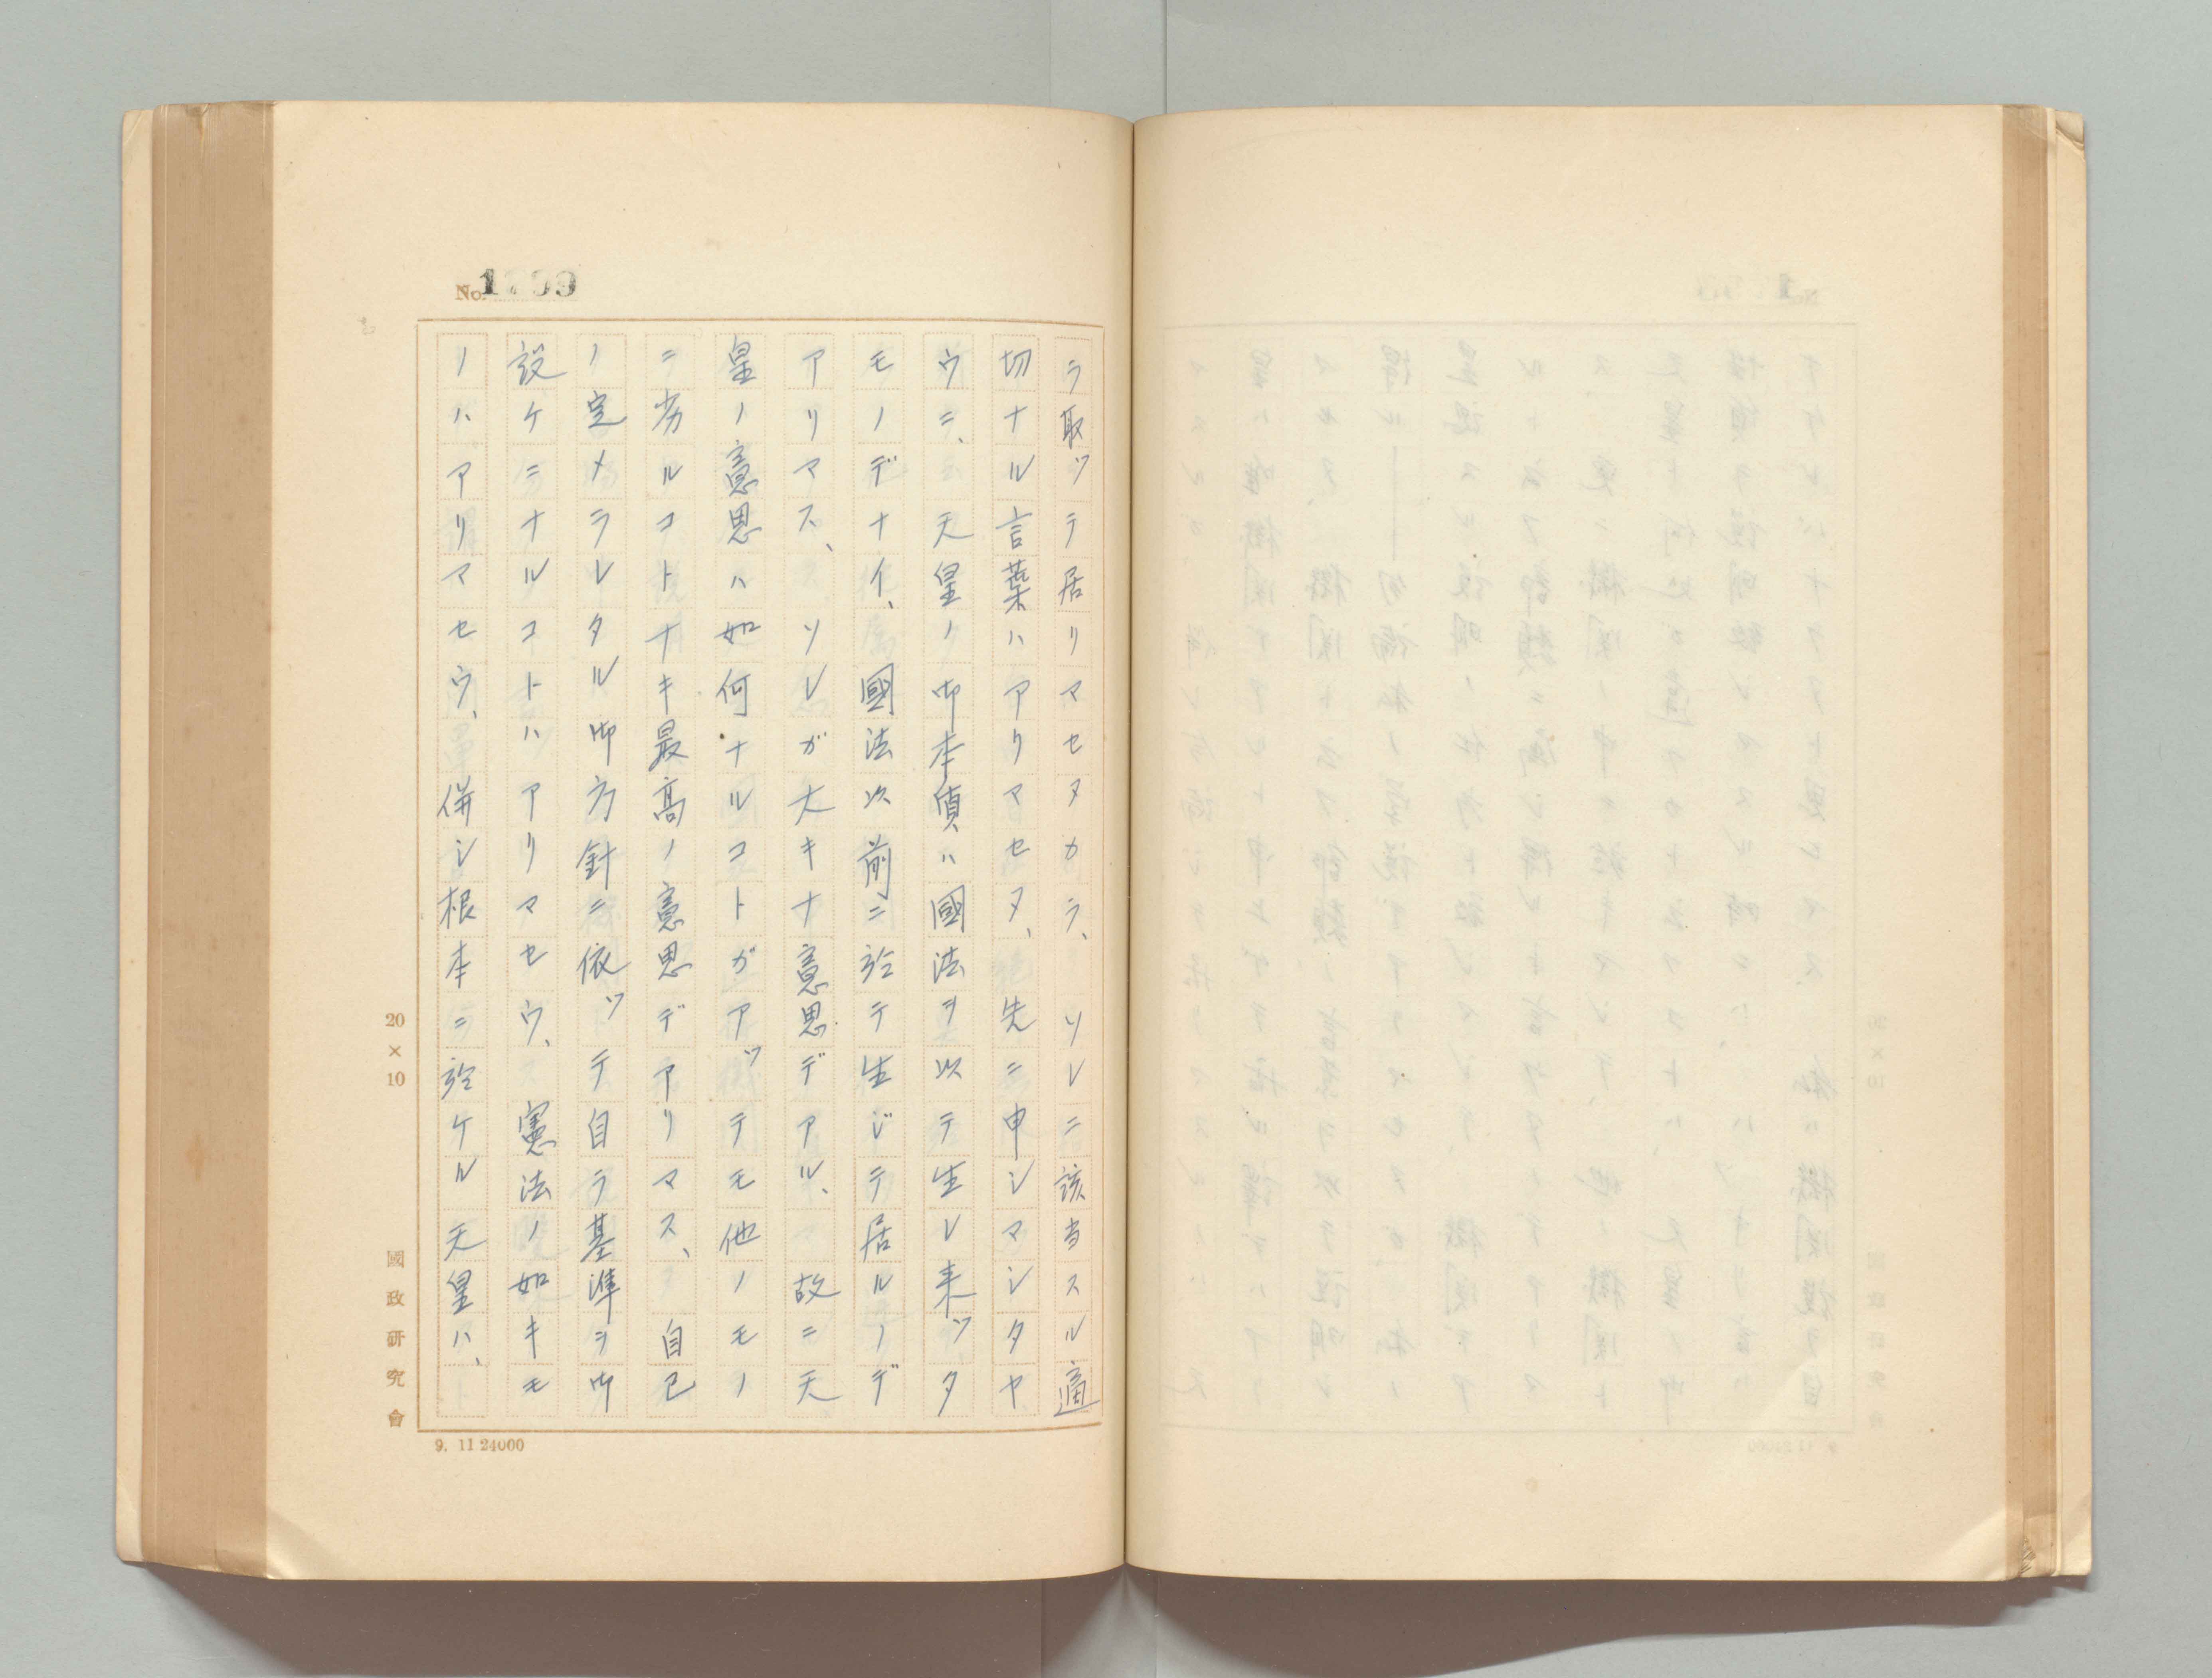 No. 1799
ラ取ッテ居リマセヌカラ、ソレニ該当スル適
切ナル言葉ハアリマセヌ、先ニ申シマシタヤ
ウニ、天皇ノ御本質ハ國法ヲ以テ生レ来ッタ
モノデナイ、國法以前ニ於テ生ジテ居ルノデ
アリマス、ソレガ大キナ意思デアル、故ニ天
皇ノ意思ハ如何ナルコトガアッテモ他ノモノ
ニ劣ルコトナキ最高ノ意思デアリマス、自己
ノ定メラレタル御方針ニ依ッテ自ラ基準ヲ御
設ケニナルコトハアリマセウ、憲法ノ如キモ
ノハアリマセウ、併シ根本ニ於ケル天皇ハ、
20×10
國政研究會
9. 11 24000